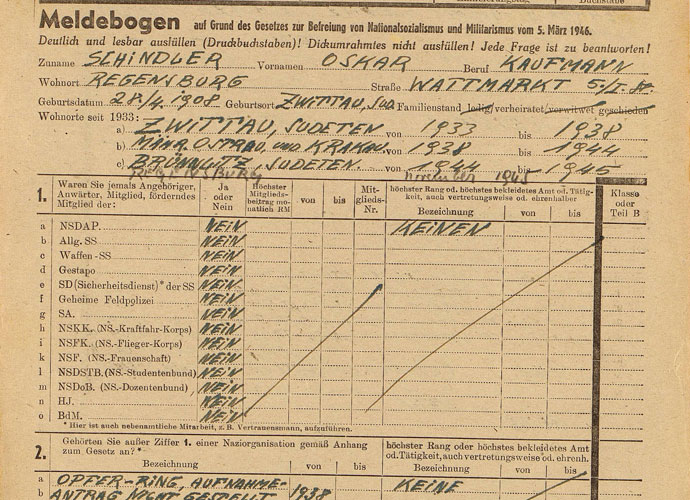 Meldebogen auf Grund des Gesetzes zur Befreiung von Nationalsozialismus und Militarismus vom 5. März 1946.
Deutlich und lesbar ausfüllen (Druckbuchstaben)! Dickumrahmtes nicht ausfüllen! Jede Frage ist zu beantworten!
Zuname SCHINDLER Vornamen OSKAR Beruf KAUFMANN
Wohnort REGENSBURG Straße WATTMARKT 5./I.
Geburtsdatum 28./4. 1908 Geburtsort ZWITTAU, Familienstand ledig/verheiratet/verwitwet geschieden
Wohnorte seit 1933:
a) ZWITTAU, SUDETEN von 1933 bis 1938
b) MÄHR. OSTRAU, und KRAKAU von 1938 bis 1944
c) BRÜNNLITZ, SUDETEN. von 1944 bis 1945
REGENSBURG november 1945
1. Waren Sie jemals Angehöriger, Anwärter, Mitglied, förderndes Mitglied der: Ja oder Nein Höchster Mitgliedsbeitrag monatlich RM von bis Mitglieds-Nr. höchster Rang od. höchstes bekleidetes Amt od. Tätigkeit, auch vertretungsweise od. ehrenhalber Bezeichnung von bis Klasse oder Teil B
a NSDAP. NEIN KEINEN
b Allg. SS NEIN
c Waffen-SS NEIN
d Gestapo NEIN
e SD (Sicherheitsdienst)* der SS NEIN
f Geheime Feldpolizei NEIN
g SA. NEIN
h NSKK. (NS.-Kraftfahr-Korps) NEIN
i NSFK. (NS.-Flieger-Korps) NEIN
k NSF. (NS.-Frauenschaft) NEIN
l NSDSTB. (NS.-Studentenbund) NEIN
m NSDoB. (NS.-Dozentenbund) NEIN
n HJ. NEIN
o BdM. NEIN
* Hier ist auch nebenamtliche Mitarbeit, z. B. Vertrauensmann, aufzuführen.
2. Gehörten Sie außer Ziffer 1. einer Naziorganisation gemäß Anhang zum Gesetz an?* höchster Rang oder höchstes bekleidetes Amt od. Tätigkeit, auch vertretungsweise od. ehrenh.
Bezeichnung von bis Bezeichnung von bis
a OPFER-RING, AUFNAHME- KEINE
ANTRAG NICHT GESTELLT 1938